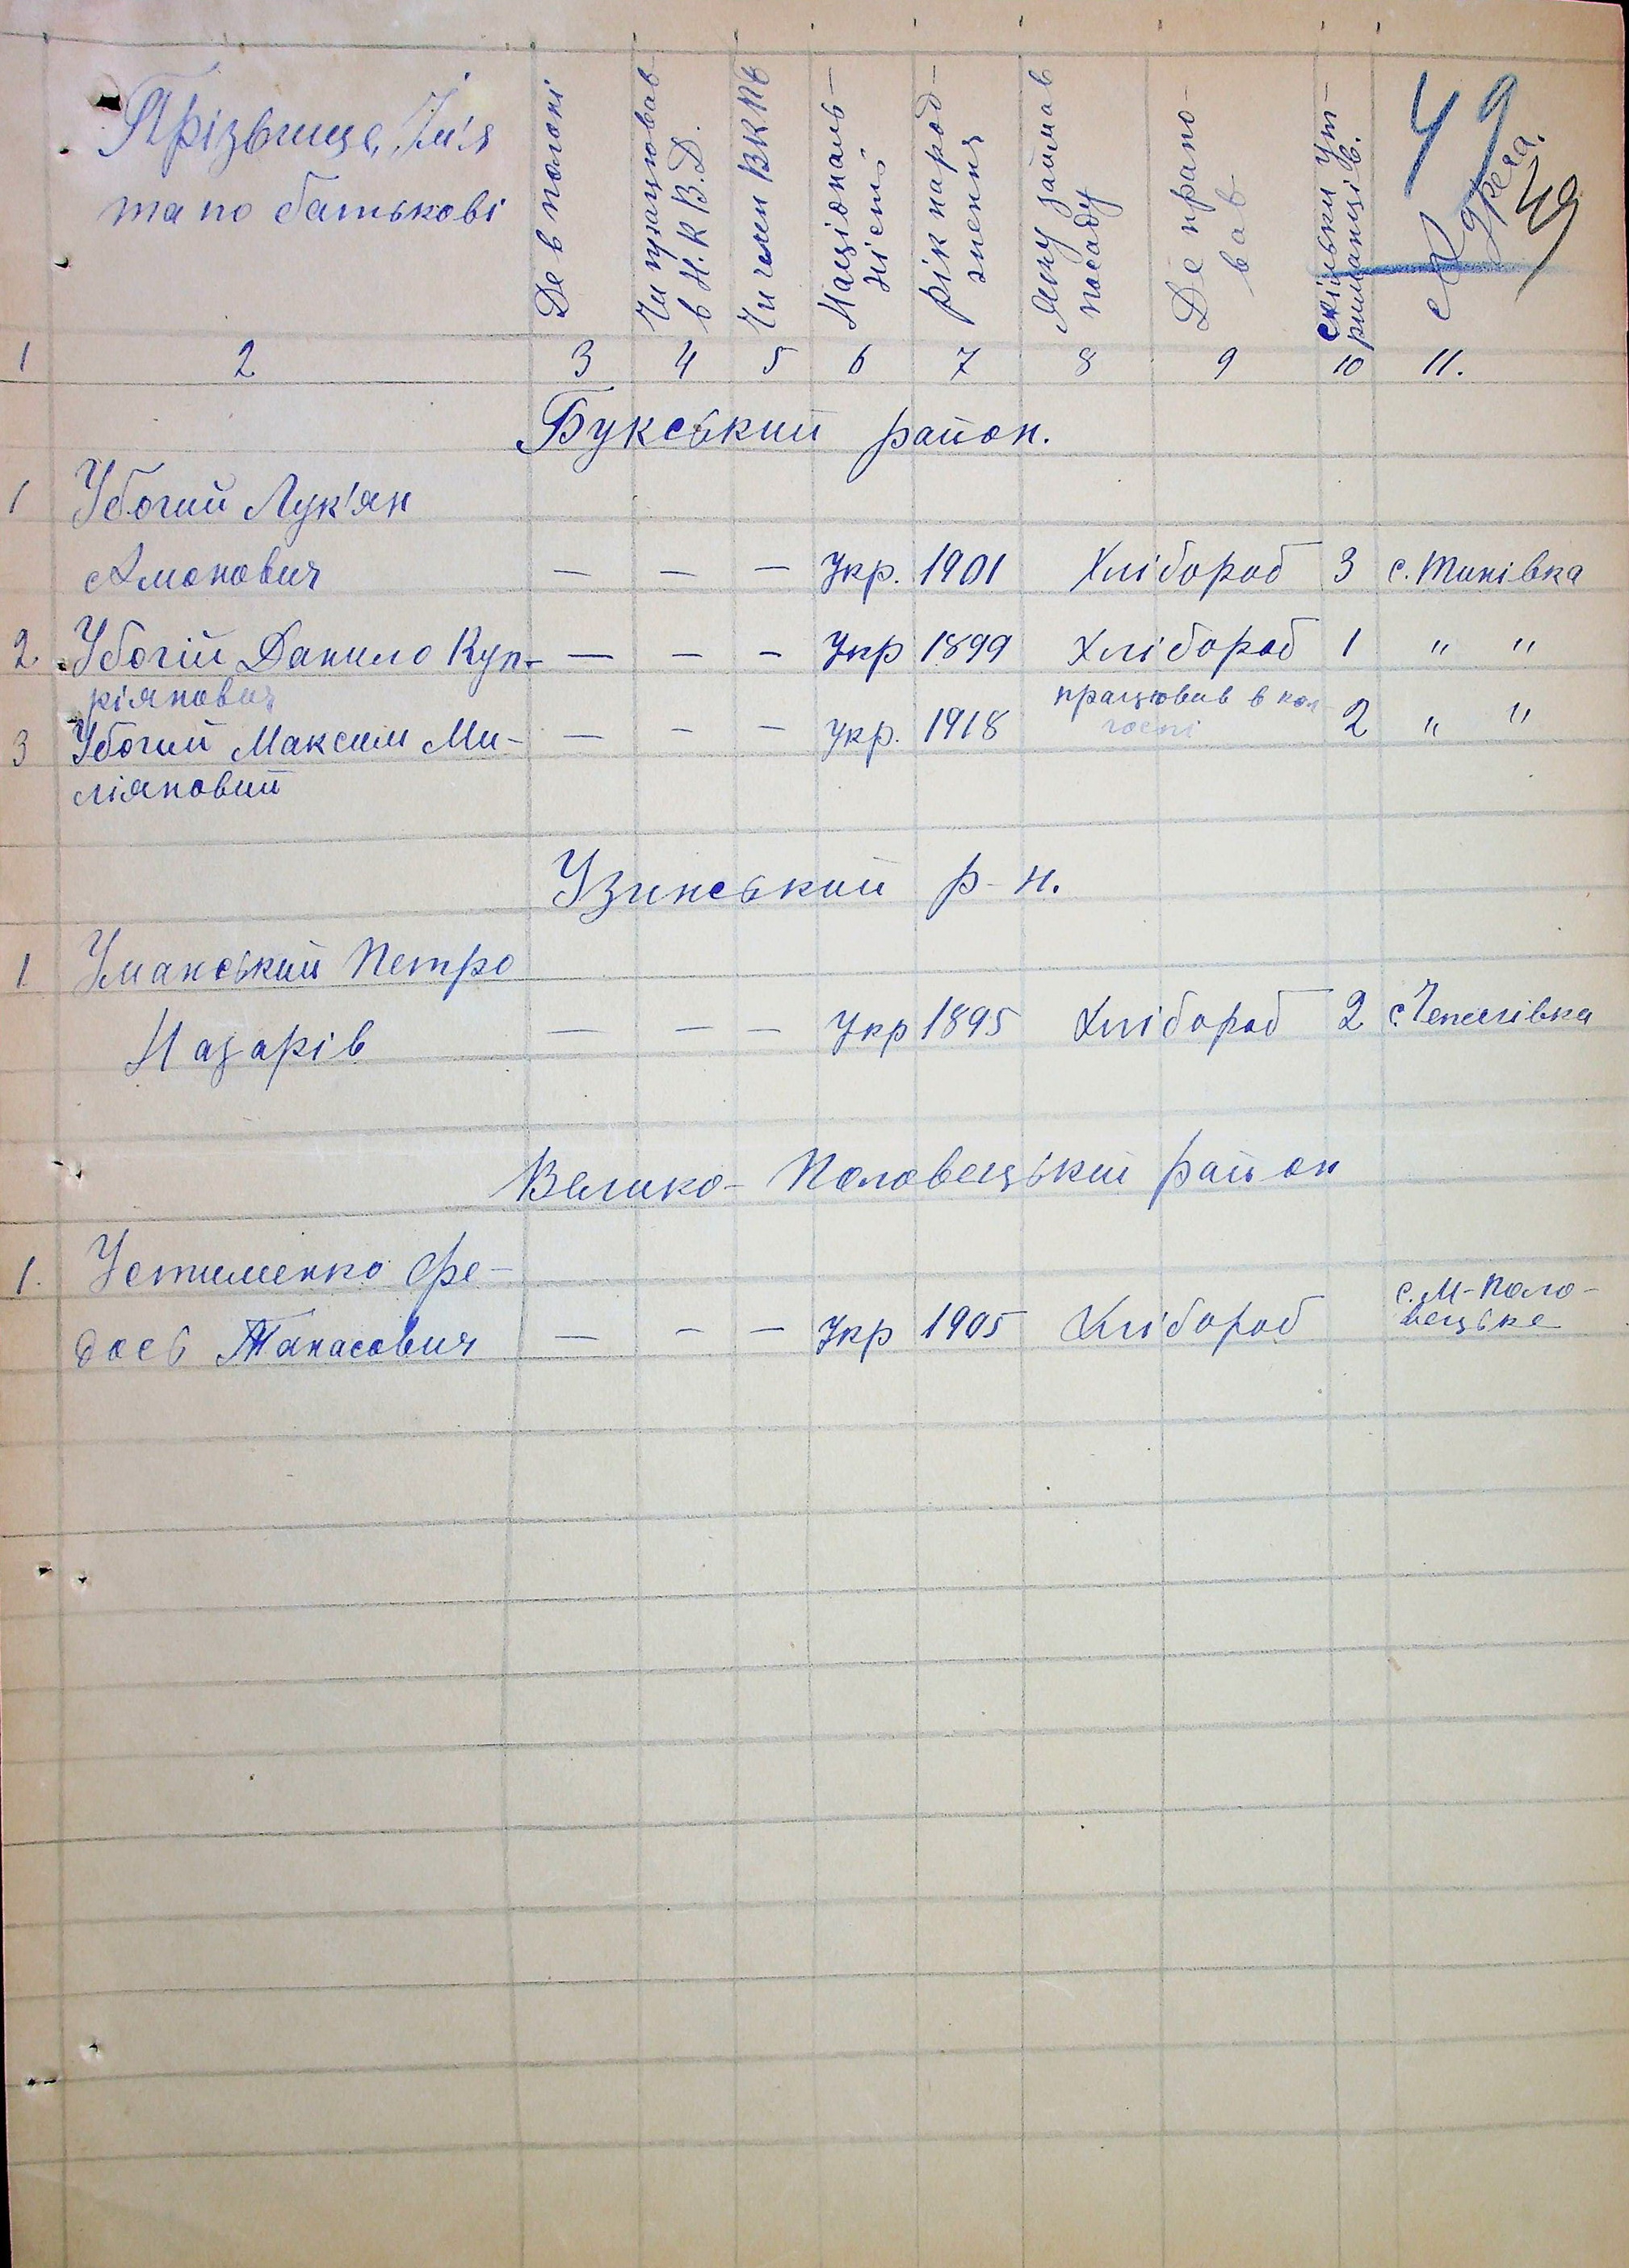 49
49
Прізвище, Ім'я
та по батькові
Де в полоні
Чи працював
в Н.К.В.Д.
Чи член ВКПб
Національ-
ність
Рік народ-
ження
Яку займав
посаду
Де працю-
вав
Скільки ут-
риманців.
Адреса.
1 2 3 4 5 6 7 8 9 10 11.
Букський район.
1 Убогий Лук'ян
Амонович — — — Укр. 1901 Хлібороб 3 с. Тинівка
2 Убогій Данило Куп- — — — Укр 1899 Хлібороб 1 " "
ріянович
3 Убогий Максим Ми- — — — Укр. 1918 працював в кол-
госпі 2 " "
ліяновий
Узинський р-н.
1 Уманський Петро
Назарів — — — Укр 1895 Хлібороб 2 с. Чепиліївка
Велико-Половецький район
1. Устименко Фе-
дось Танасович — — — Укр 1905 Хлібороб с. М-Поло-
вецьке